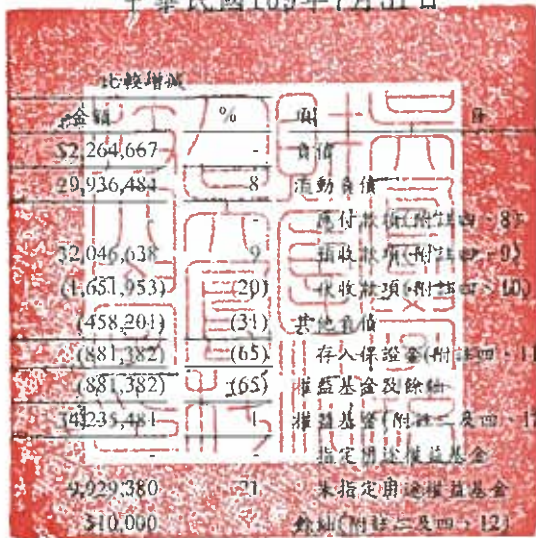 中華民國109年7月31日
比較增減
金額 % 項 目
52,264,667 - 負債
29,936,484 8 流動負債
- 應付款項(附註四、8)
32,046,638 9 預收款項(附註四、9)
(1,651,953) (20) 代收款項(附註四、10)
(458,201) (31) 其他負債
(881,382) (65) 存入保證金(附註四、11
(881,382) (65) 權益基金及餘絀
34,235,481 1 權益基金(附註二及四、12
- - 指定用途權益基金
9,929,380 21 未指定用途權益基金
310,000 餘絀(附註二及四、12)